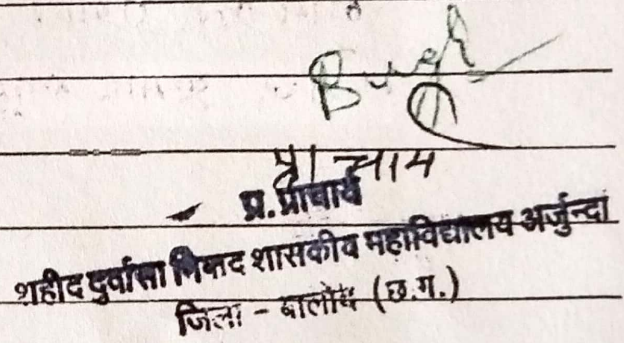 प्राचार्य
प्र. प्राचार्य
शहीद दुर्वासा निषाद शासकीय महाविद्यालय अर्जुन्दा
जिला - बालोद (छ.ग.)